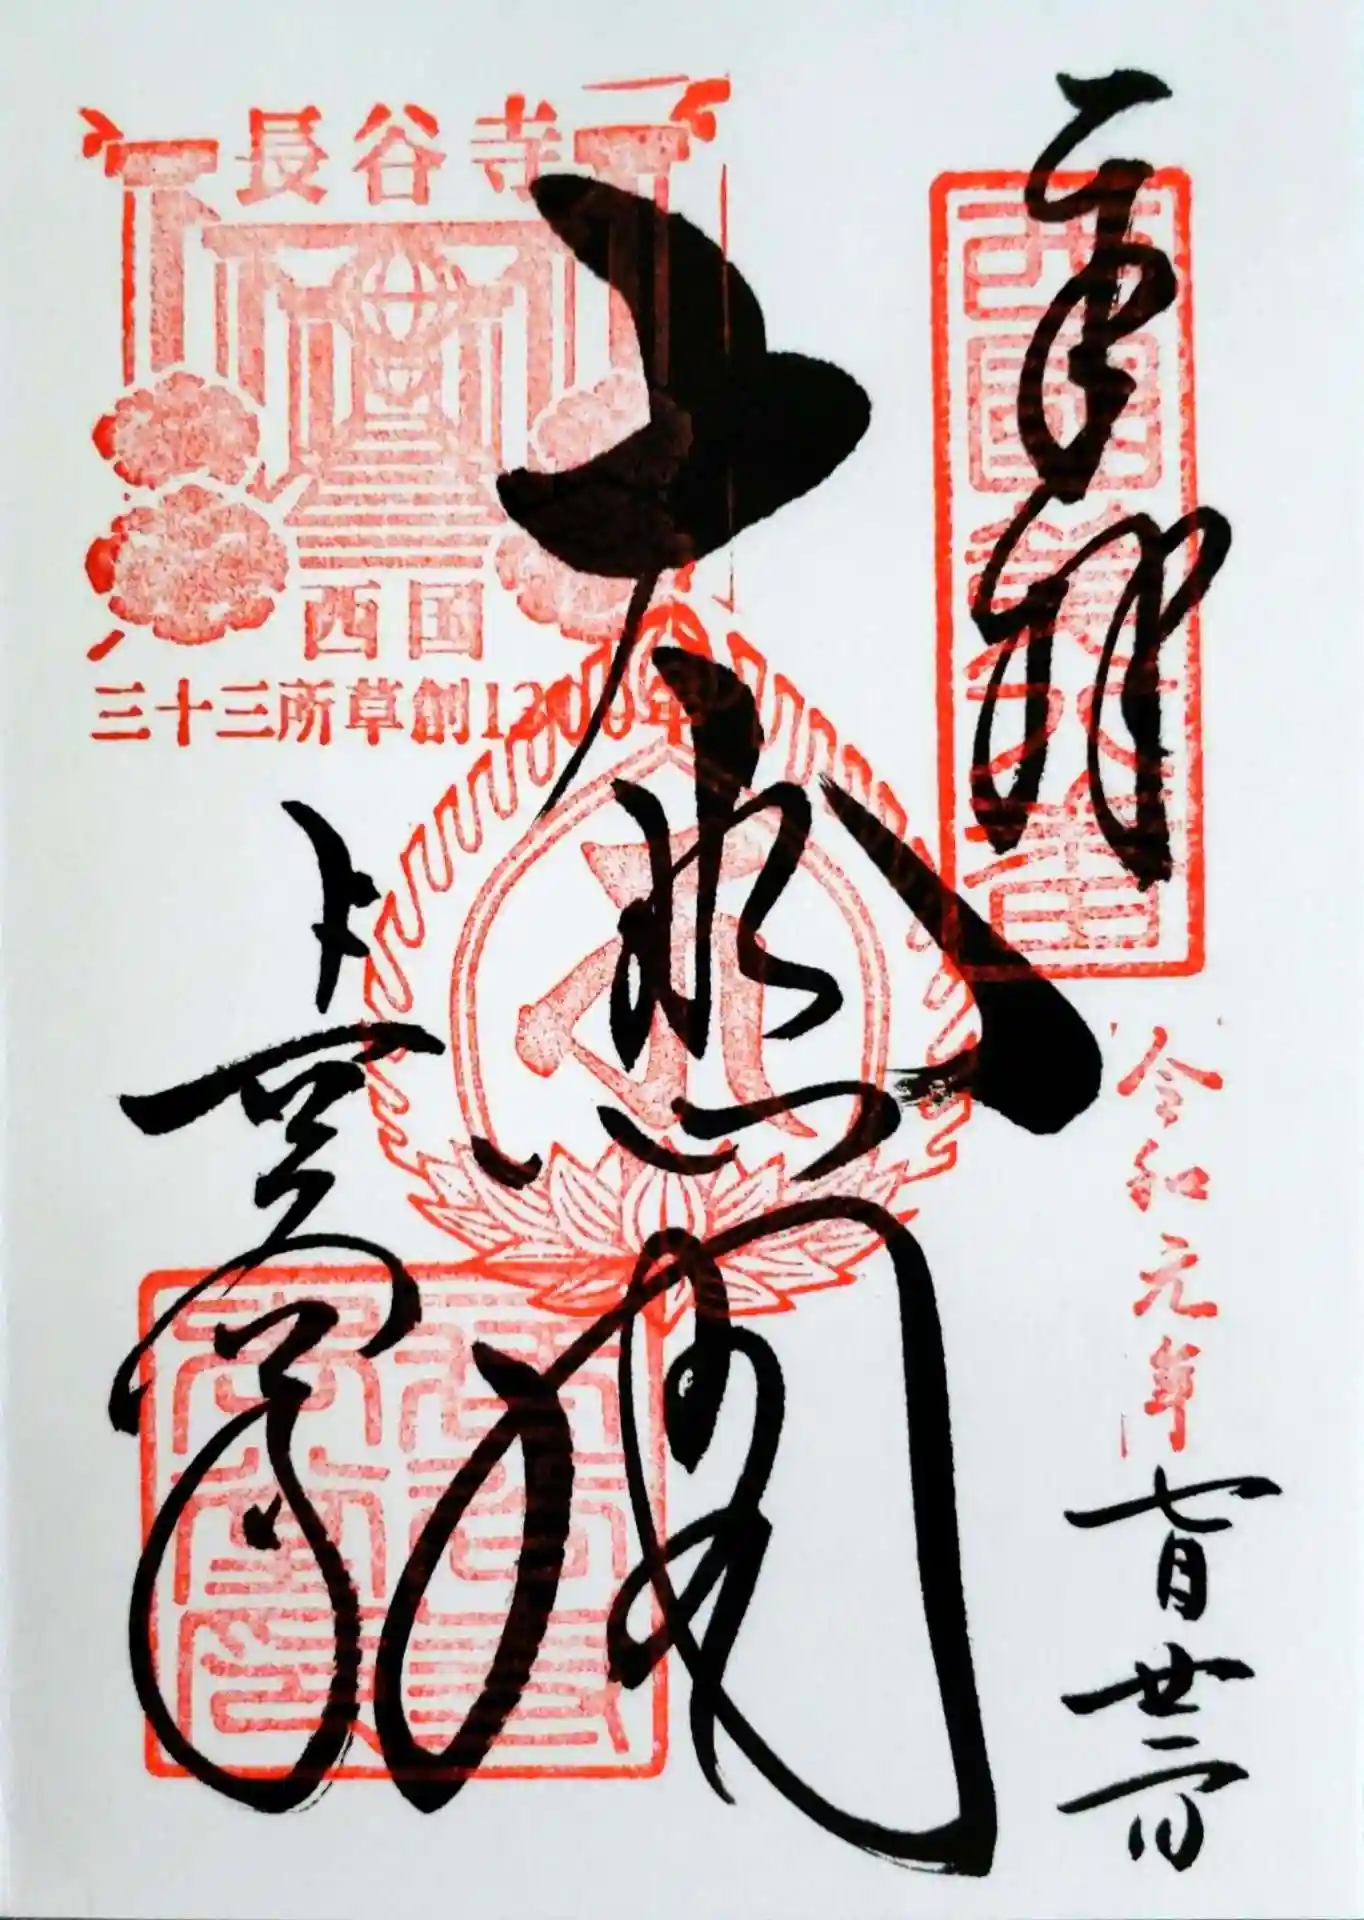 奉拝
西國第八番
令和元年
七月廿二日
大悲閣
長谷寺
長谷寺
西国
三十三所草創1300年